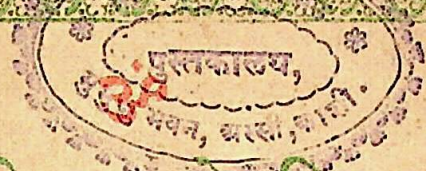 पुस्तकालय,
भवन, अस्सी, काशी.